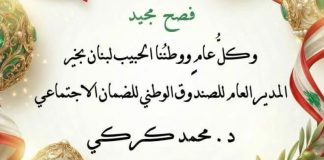 فصح مجيد
وكلُّ عامٍ ووطنُنا الحبيب لبنان بخير
المدير العام للصندوق الوطني للضمان الاجتماعي
د. محمد كركي